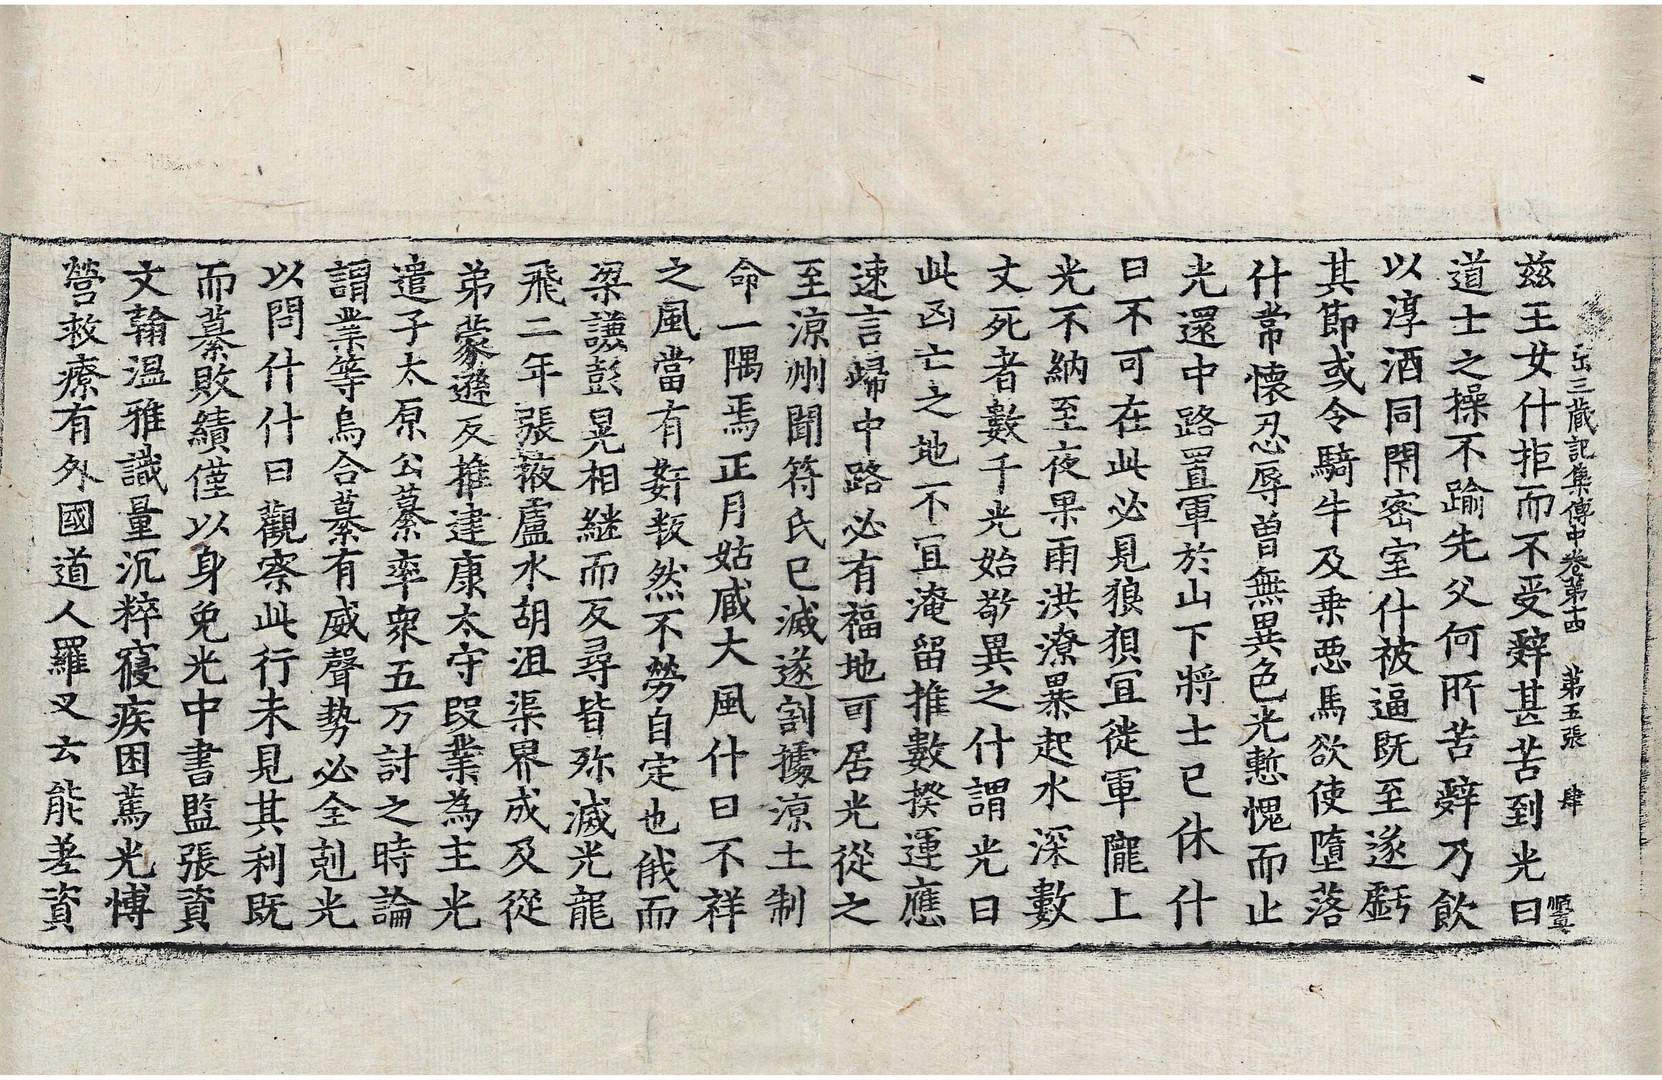 出三藏記集傳中卷第十四　第五張　肆
兹王女什拒而不受辝甚苦到光曰
道士之操不踰先父何所苦辝乃飲
以淳酒同閇密室什被逼既至遂虧
其節或令騎牛及乗悪馬欲使墮落
什常懷忍辱曾無異色光慙愧而止
光還中路置軍於山下將士已休什
曰不可在此必見狼狽冝徙軍隴上
光不納至夜果雨洪潦暴起水深數
丈死者數千光始敬異之什謂光曰
此凶亡之地不冝淹留推數揆運應
速言歸中路必有福地可居光從之
至涼州聞符氏已滅遂割據涼土制
命一隅焉正月姑臧大風什曰不祥
之風當有姧叛然不勞自定也俄而
梁謙彭晃相継而反尋皆殄滅光龍
飛二年張掖盧水胡沮渠界成及從
弟蒙遜反推建康太守段業為主光
遣子太原公纂率衆五万討之時論
謂業等烏合纂有威聲勢必全剋光
以問什什曰觀察此行未見其利既
而纂敗績僅以身免光中書監張資
文翰温雅識量沉粹寢疾困篤光博
營救療有外國道人羅叉云能差資